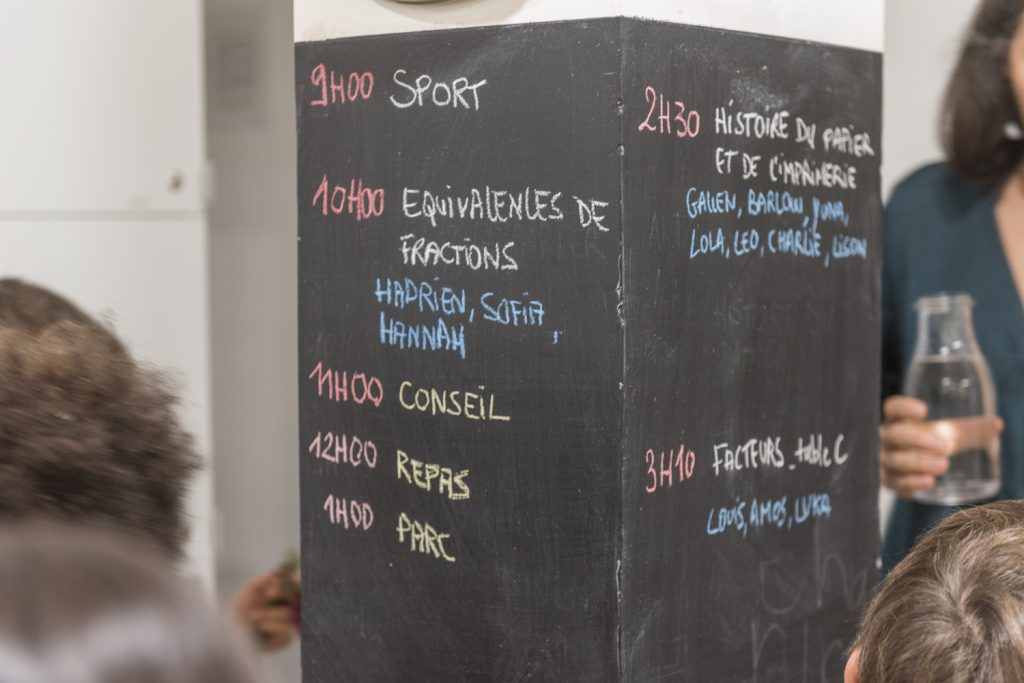 9H00 SPORT
10H00 EQUIVALENCES DE
FRACTIONS
HADRIEN, SOFIA,
HANNAH
11H00 CONSEIL
12H00 REPAS
1H00 PARC
2H30 HISTOIRE DU PAPIER
ET DE L'IMPRIMERIE
BARLOW, YUNA,
LOLA, LEO, CHARLIE,
3H10 FACTEURS_table C
LOUIS, AMOS, LUKA